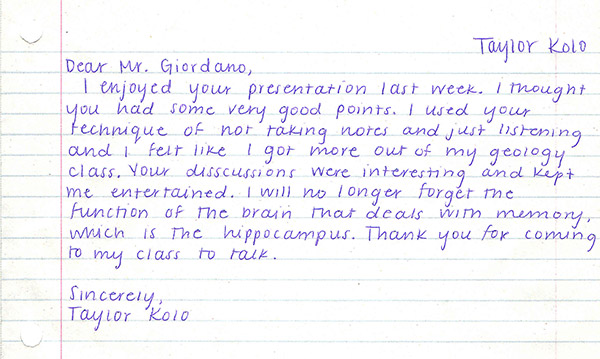 Taylor Kolo
Dear Mr. Giordano,
I enjoyed your presentation last week. I thought
you had some very good points. I used your
technique of not taking notes and just listening
and I felt like I got more out of my geology
class. Your disscussions were interesting and kept
me entertained. I will no longer forget the
function of the brain that deals with memory,
which is the hippocampus. Thank you for coming
to my class to talk.
Sincerely,
Taylor Kolo